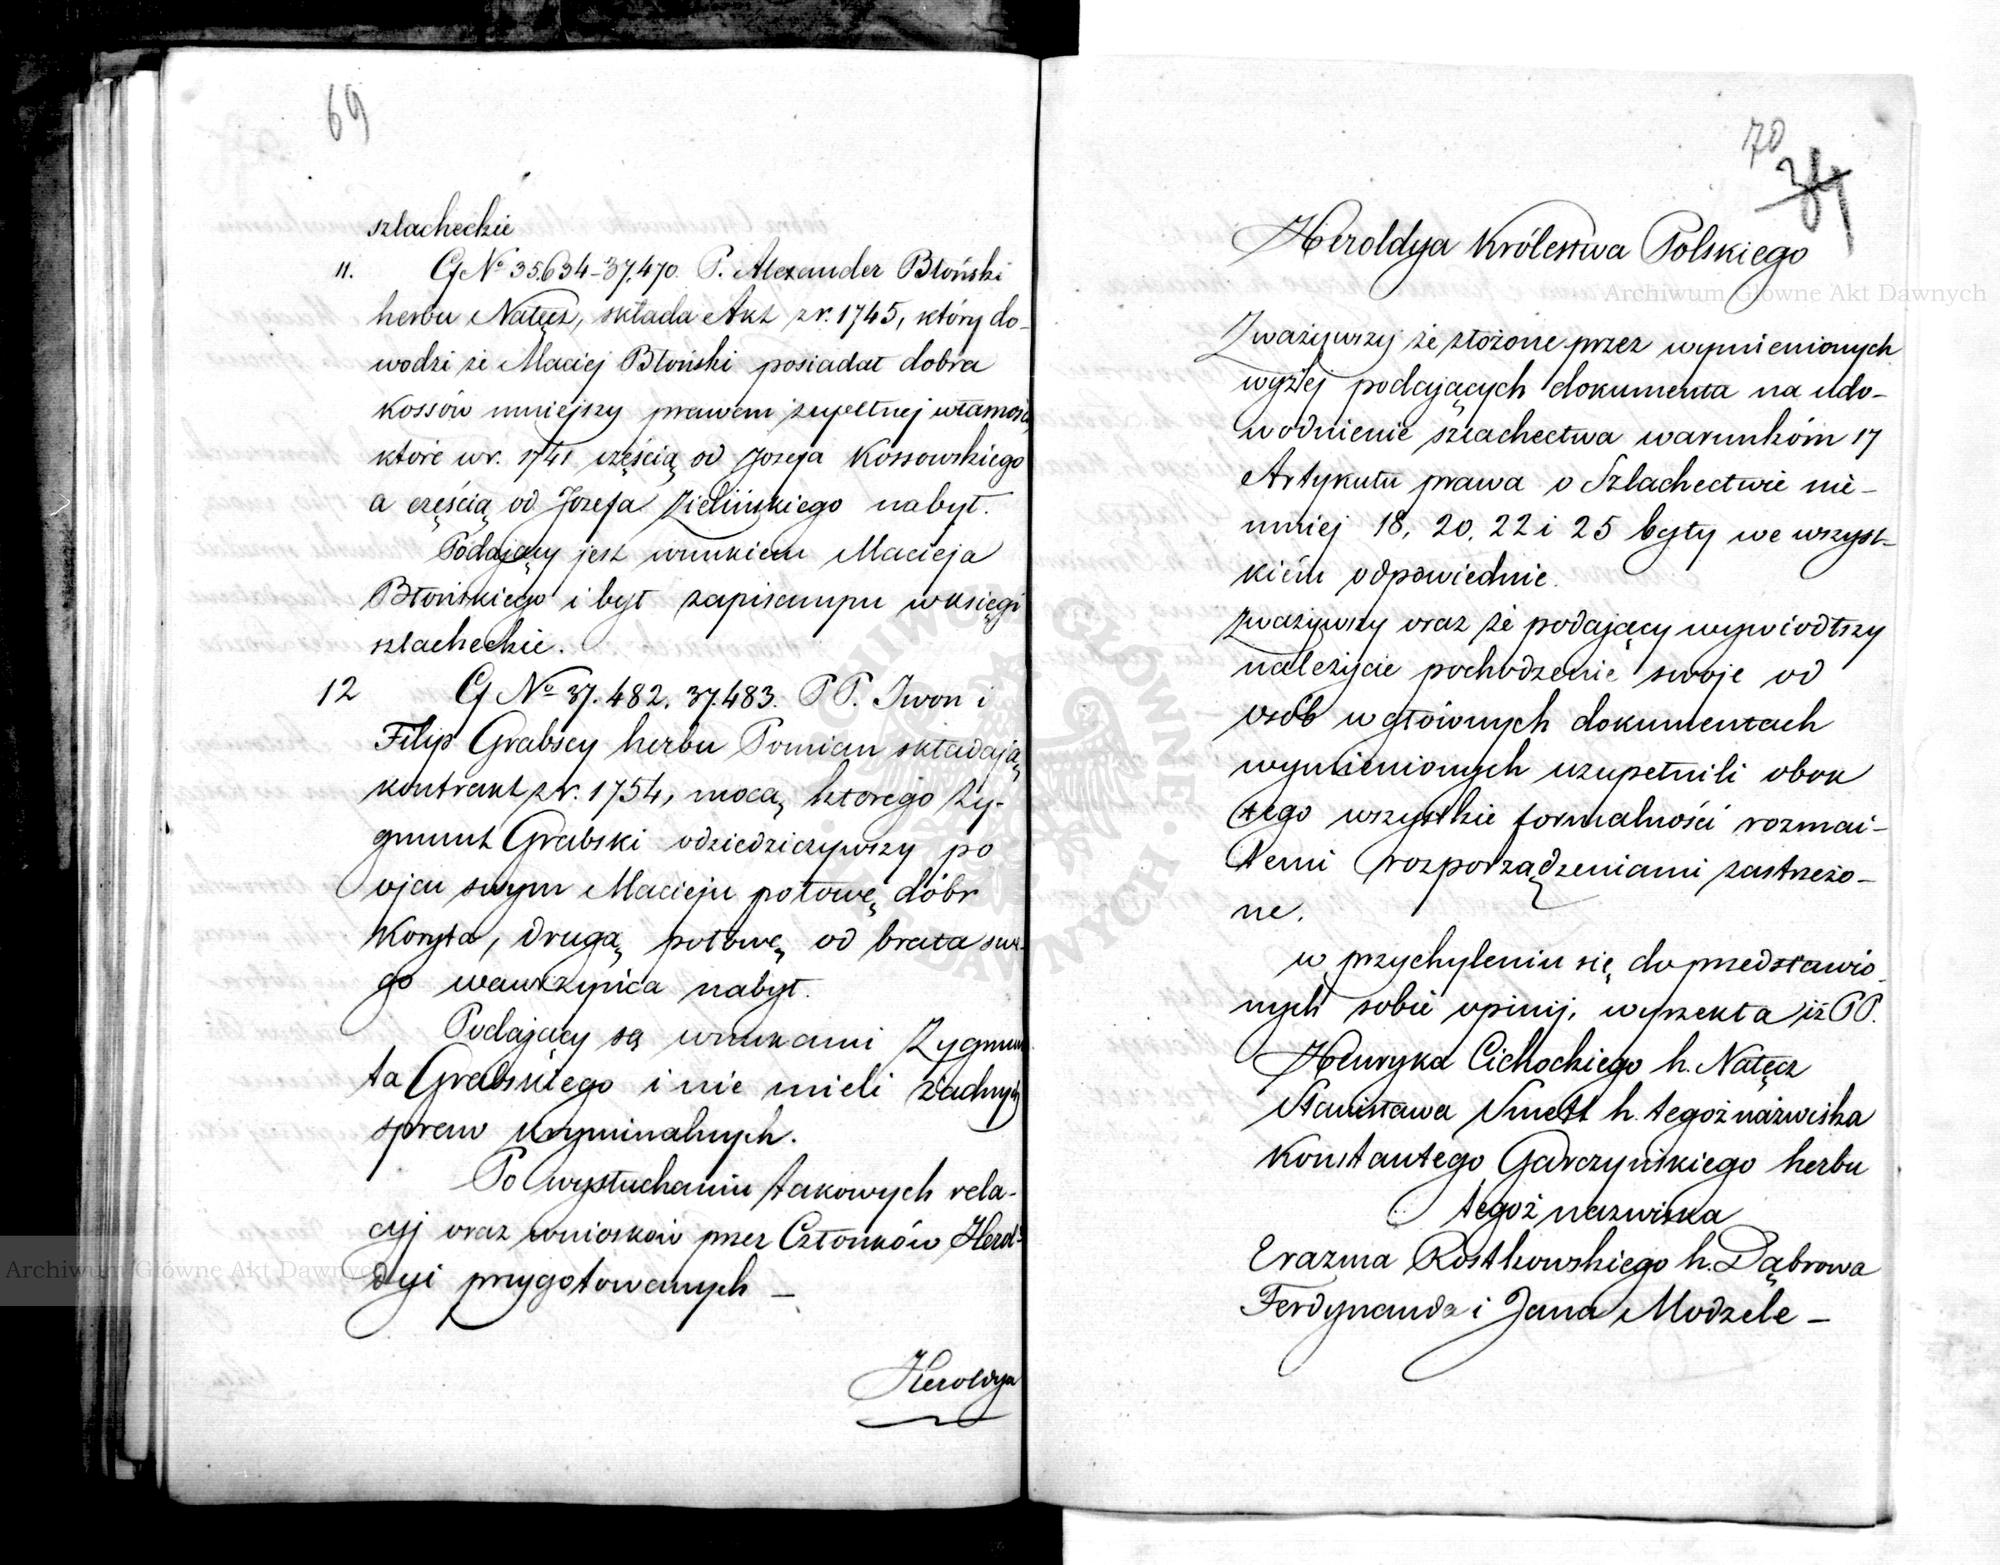 69
szlacheckie
11. G N° 35.634-37.470. P. Alexander Błoński
herbu Nałęcz, składa Akt z r. 1745, który do-
wodzi że Maciej Błoński posiadał dobra
Kossów mniejszy prawem zupełtnej własności,
które w r. 1741 częścią od Jozefa Kossowskiego
a częścią od Jozefa Zielińskiego nabył.
Podający jest wnukiem Macieja
Błońskiego i był zapisanym w księgi
szlacheckie.
12 G N° 37.482. 37.483. P P. Iwon i
Filip Grabscy herbu Pomian składają
kontrakt z r. 1754, mocą ktorego Zy-
gmunt Grabski odziedziczywszy po
ojcu swym Macieju połowę dóbr
Koryta, drugą połowę od brata swe-
go wawrzyńca nabył.
Podający są wnukami Zygmun-
ta Grabskiego i nie mieli żadnych
spraw kryminalnych.
Po wysłuchaniu takowych rela-
cyj oraz wnioskow przez Członków Herol-
dyi przygotowanych —
Heroldya
70
Heroldya Królestwa Polskiego
Zważywszy że złożone przez wymienionych
wyżej podających dokumenta na udo-
wodnienie szlachectwa warunkóm 17
Artykułu prawa o Szlachectwie nie-
mniej 18, 20, 22 i 25 były we wszyst-
kiém odpowiednie.
Zważywszy oraz że podający wywiodłszy
należycie pochodzenie swoje od
osób w głównych dokumentach
wymienionych uzupełnili obok
tego wszystkie formalności rozmai-
temi rozporządzeniami zastrzeżo-
ne.
w przychyleniu się do przedstawio-
nych sobie opinij, wyrzekła iż PP.
Henryka Cichockiego h. Nałęcz
Stanisława Smett h. tegoż nazwiska
Konstantego Garczyńskiego herbu
tegoż nazwiska
Erazma Rostkowskiego h. Dąbrowa
Ferdynanda i Jana Modzele —
Archiwum Główne Akt Dawnych
Archiwum Główne Akt Dawnych
ARCHIWUM GŁÓWNE AKT DAWNYCH